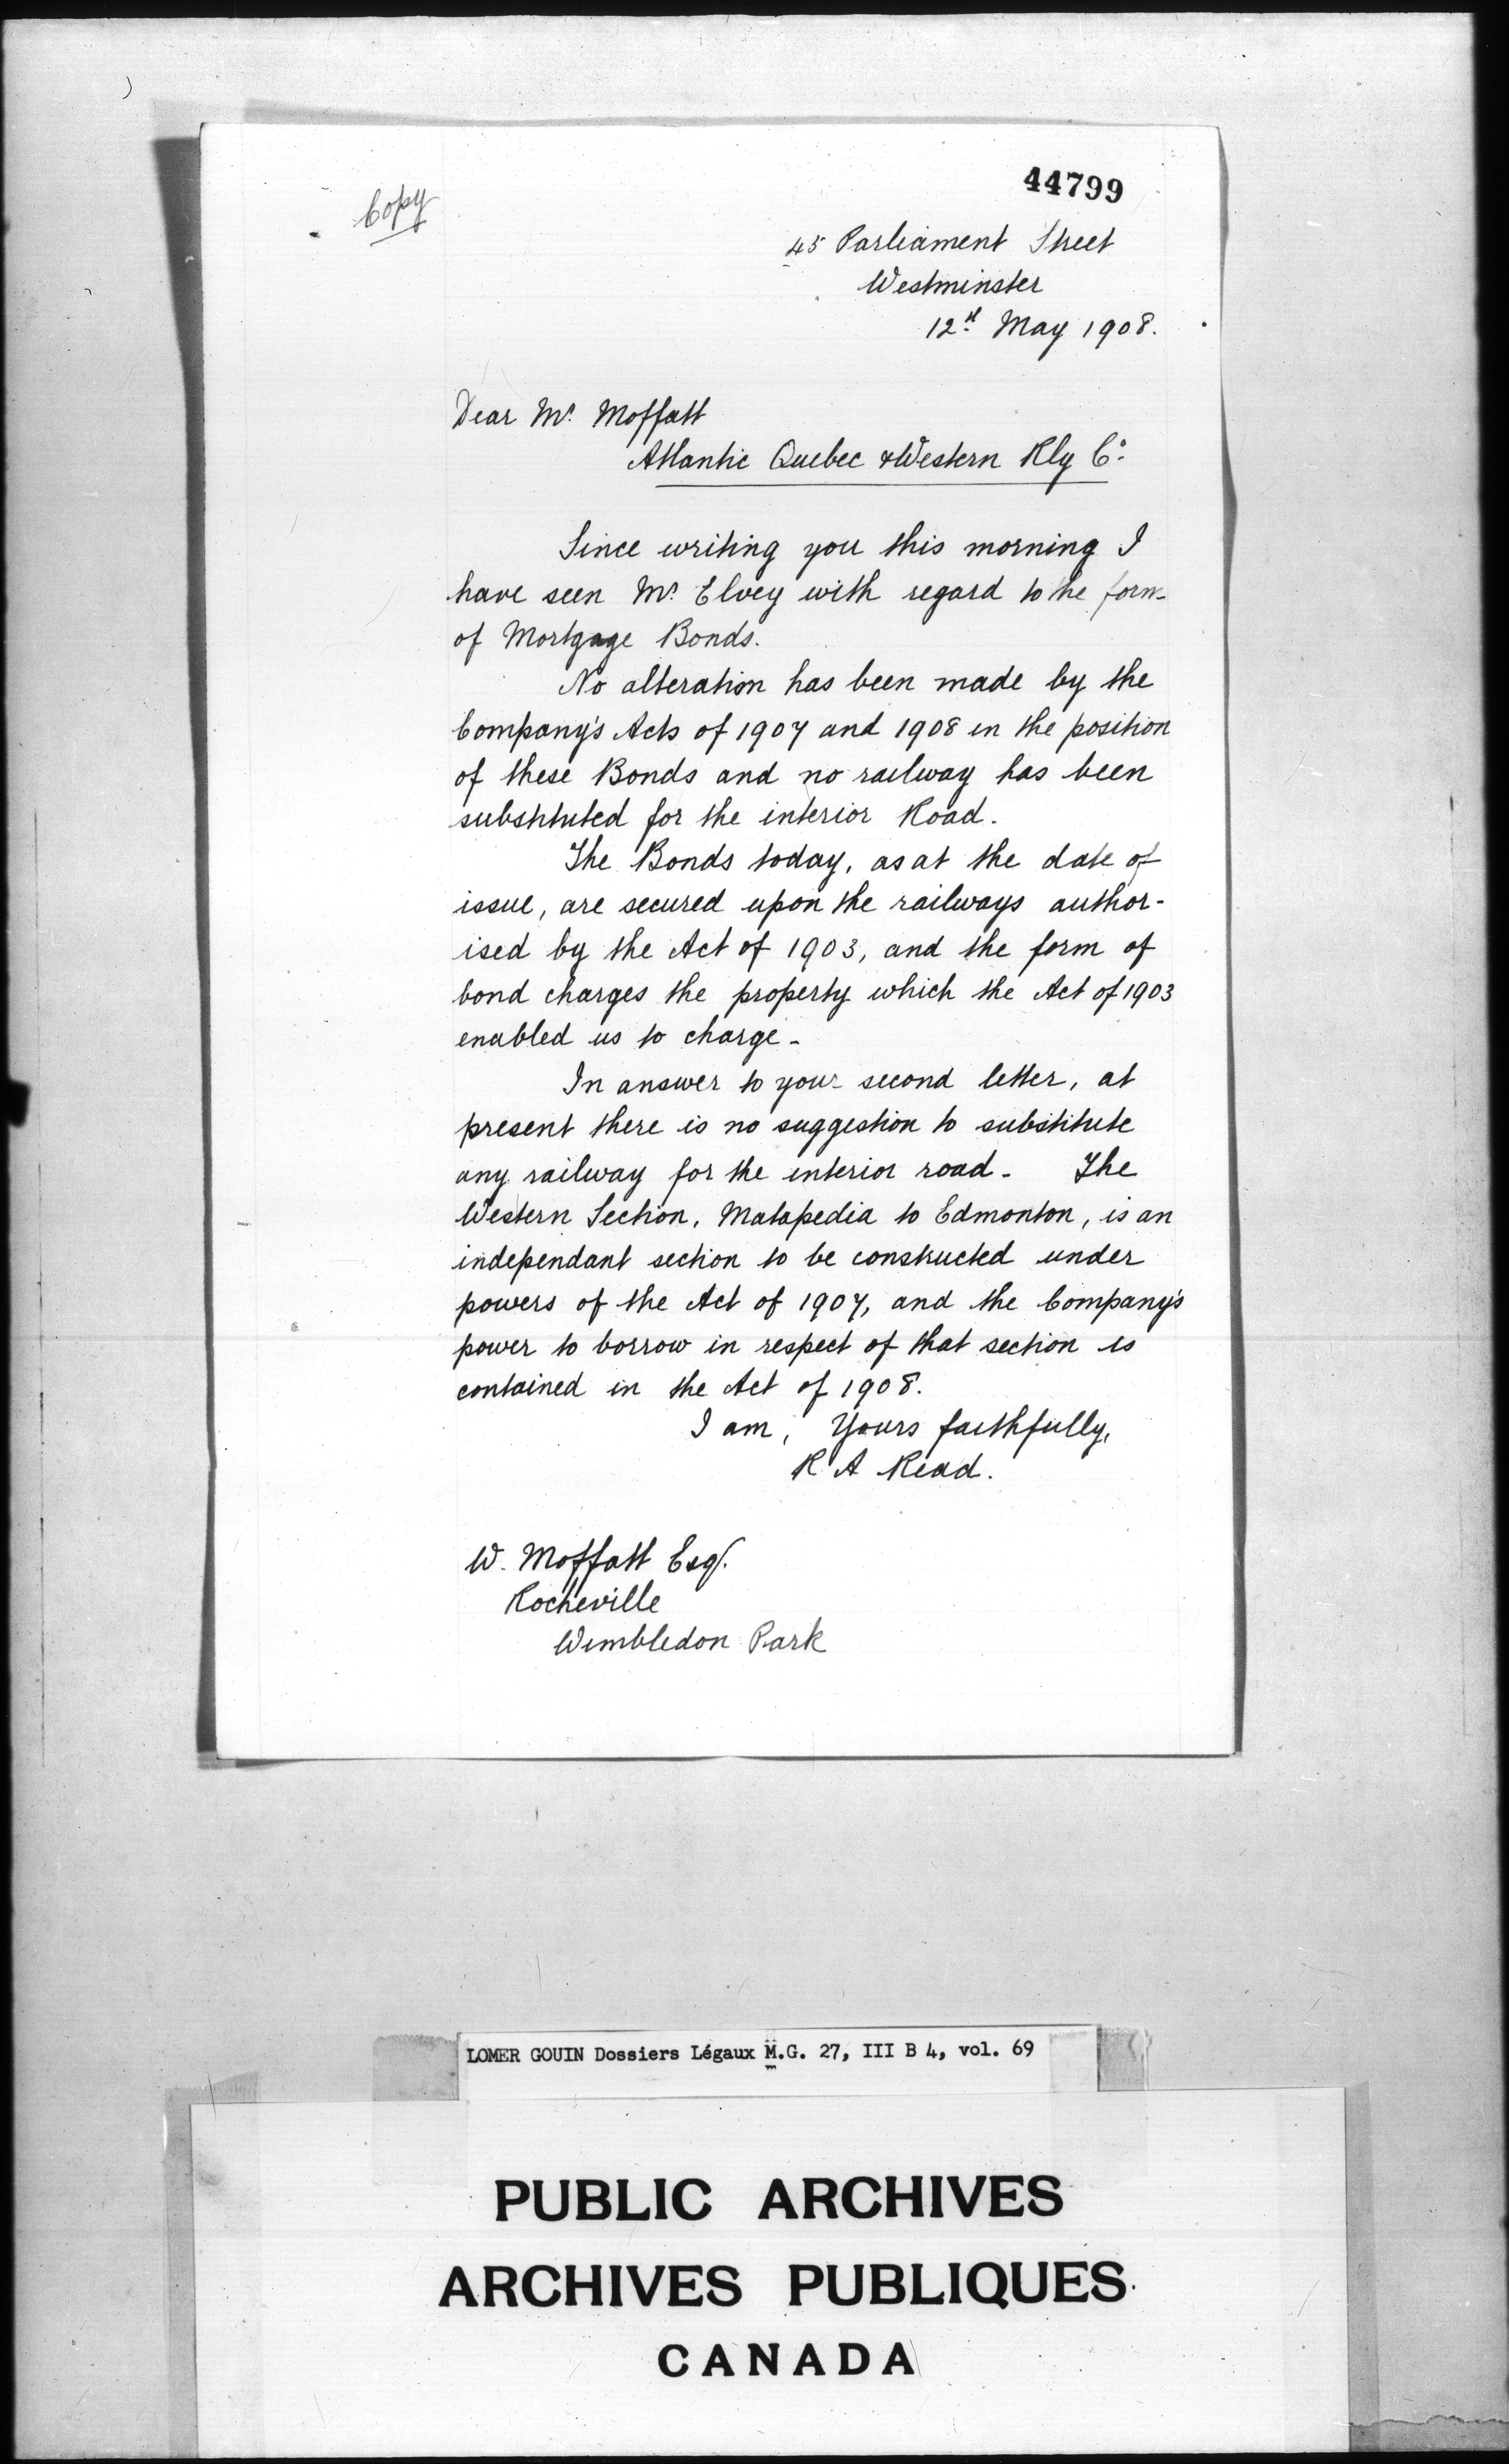 44799
Copy
45 Parliament Street
Westminster
12th May 1908.
Dear Mr. Moffatt
Atlantic Quebec & Western Rly Co.
Since writing you this morning I
have seen Mr. Elvey with regard to the form
of Mortgage Bonds.
No alteration has been made by the
Company's Acts of 1907 and 1908 in the position
of these Bonds and no railway has been
substituted for the interior Road.
The Bonds today, as at the date of
issue, are secured upon the railways author-
ised by the Act of 1903, and the form of
bond charges the property which the Act of 1903
enabled us to charge -
In answer to your second letter, at
present there is no suggestion to substitute
any railway for the interior road - The
Western Section, Matapedia to Edmonton, is an
independant section to be constructed under
powers of the Act of 1907, and the Company's
power to borrow in respect of that section is
contained in the Act of 1908.
I am, Yours faithfully,
R A Read.
W. Moffatt Esq.
Rocheville
Wimbledon Park
LOMER GOUIN Dossiers Légaux M.G. 27, III B 4, vol. 69
PUBLIC ARCHIVES
ARCHIVES PUBLIQUES
CANADA